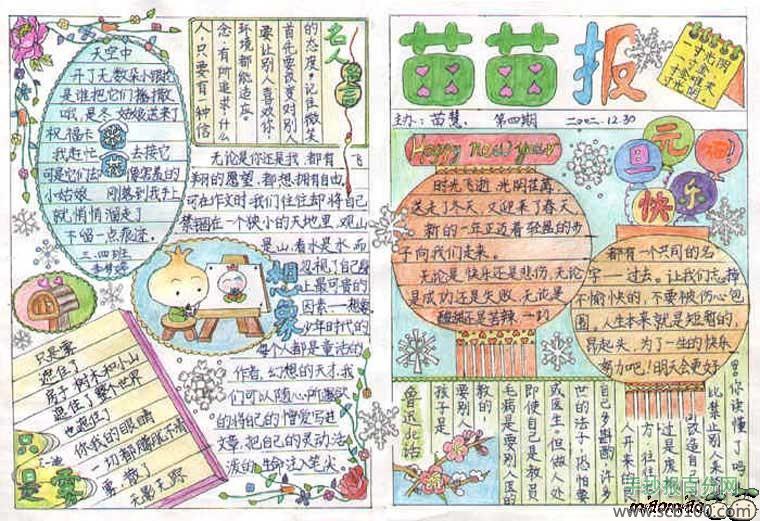 天空中
开了无数朵小眼花
是谁把它们播撒
哦,是冬姑娘送来了
祝福卡
我赶忙 去接它
可是它们 像害羞的
小姑娘 刚落到我手上
就悄悄溜走了
不留一点痕迹。
三.四班
名人名言
人,只要有一种信
念,有所追求,什么
环境都能适应。
要让别人喜欢你,
首先要改变对别人
的态度。记住微笑
无论是你还是我,都有 飞
翔的愿望,都想拥有自由,
可在作文时我们往往却将自己
禁锢在一个狭小的天地里,观山
是山,看水是水,而
忽视了自己身
上最可贵的
因素,—想象
少年时代的
每个人都是童话的
作者,幻想的天才,我
们可以随心所遇欲
的将自己的憎爱写进
文章,把自己的灵动活
泼的生命注入笔尖
想象
只是雾
只是雾
遮住了
房子 树木和小山
遮住了整个世界
也遮住了
你我的眼睛
一切都朦胧不清
雾,散了
无影无踪
苗苗报
一寸光阴
一寸金
寸金难买
寸光阴。
主办:苗慧. 第四期 二〇〇二.12.30
Happy new year
元旦快乐
时光飞逝,光阴荏苒,
送走了冬天,又迎来了春天,
新的一年正迈着轻盈的步
子向我们走来。
无论是快乐还是悲伤,无论
是成功还是失败,无论是
酸甜还是苦辣,一切
都有一个共同的名
字——过去。让我们忘掉
不愉快的,不要被伤心包
围。人生本来就是短暂的,
昂起头,为了一生的快乐
努力吧!明天会更好
鲁迅的话
孩子是
要别人
教的
毛病是要别人医的
即使自己是教员
或医生。但做人处
世的法子,恐怕要
自己斟酌,许多
人开来
方,往往
过是废
改造自
比禁止别人来
你读懂了吗
手抄报百分网
www.scb100.com